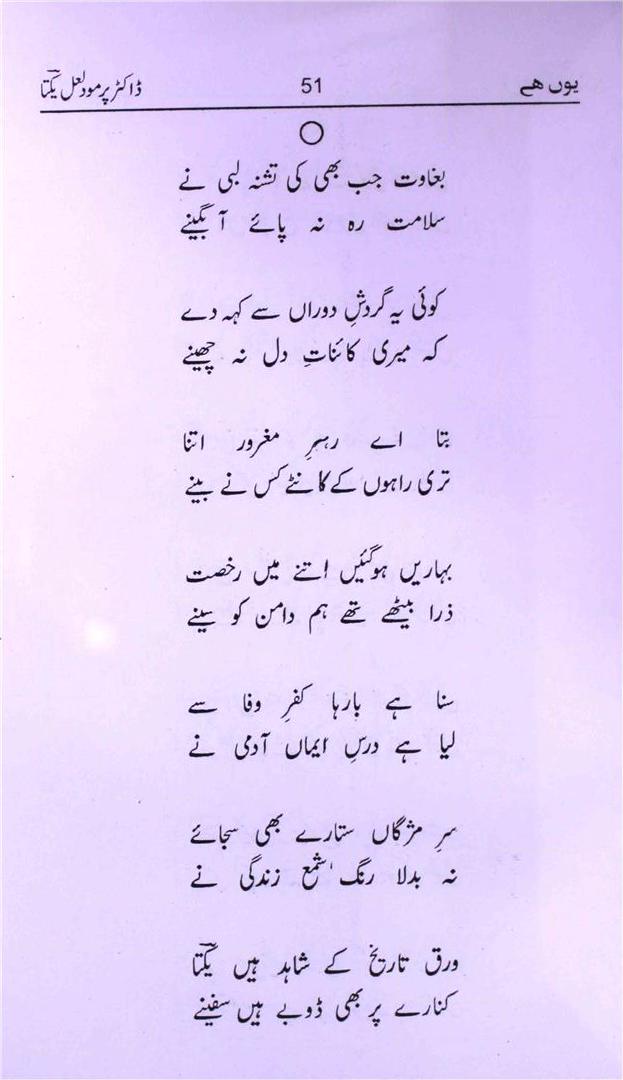 یوں ھے 51 ڈاکٹر پرمود لعل یکتاؔ
بغاوت جب بھی کی تشنہ لبی نے
سلامت رہ نہ پائے آبگینے
کوئی یہ گردشِ دوراں سے کہہ دے
کہ میری کائناتِ دل نہ چھینے
بتا اے رہبرِ مغرور اتنا
تری راہوں کے کانٹے کس نے بینے
بہاریں ہوگئیں اتنے میں رخصت
ذرا بیٹھے تھے ہم دامن کو سینے
سنا ہے بارہا کفرِ وفا سے
لیا ہے درسِ ایماں آدمی نے
سرِ مژگاں ستارے بھی سجائے
نہ بدلا رنگ، شمعِ زندگی نے
ورق تاریخ کے شاہد ہیں یکتاؔ
کنارے پر بھی ڈوبے ہیں سفینے